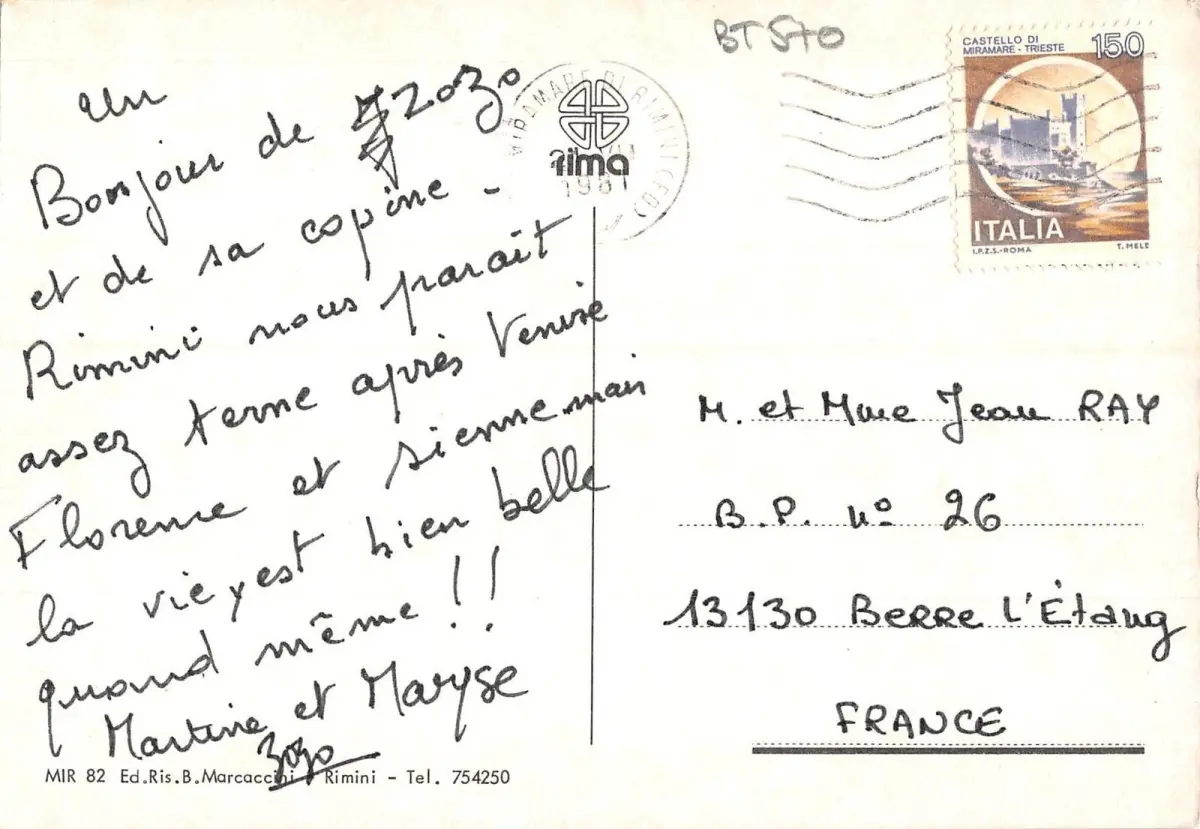 BT 570
CASTELLO DI
MIRAMARE - TRIESTE
150
ITALIA
I.P.Z.S.-ROMA
T. MELE
MIRAMARE DI RIMINI (FO)
rima
1981
Un
Bonjour de zozo
et de sa copine -
Rimini nous paraît
assez terne après Venise
Florence et sienne mais
la vie y est bien belle
quand même !!
Martine et Maryse
zozo
M. et Mme Jean RAY
B.P. nº 26
13130 Berre L'Étang
FRANCE
MIR 82 Ed.Ris.B.Marcaccini Rimini - Tel. 754250